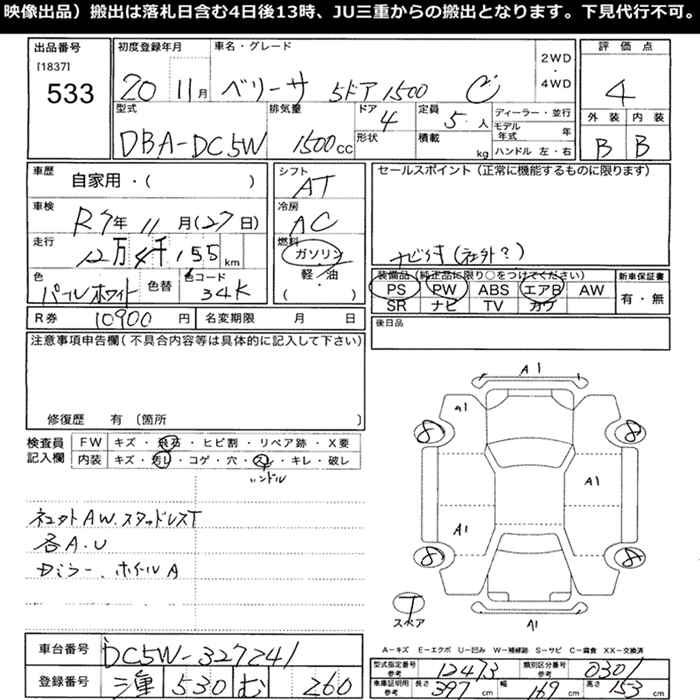 映像出品）搬出は落札日含む4日後13時、JU三重からの搬出となります。下見代行不可。
出品番号
[1837]
533
初度登録年月
20 11月
車名・グレード
ベリーサ 5ドア1500 C
2WD
・
4WD
評価点
4
型式
DBA-DC5W
排気量
1500cc
ドア
4
形状
定員
5人
積載
kg
ディーラー・並行
モデル年式 年
ハンドル 左・右
外装 内装
B B
車歴
自家用・( )
車検
R7年 11月(27日)
走行
12万4千155km
色
パールホワイト
色替
色コード
34K
シフト
AT
冷房
AC
燃料
ガソリン
軽・油
( )
セールスポイント（正常に機能するものに限ります）
ナビ付(社外?)
装備品（純正品に限り○をつけてください）
PS PW ABS エアB AW
SR ナビ TV カワ
新車保証書
有・無
R券 10900円
名変期限 月 日
後日品
注意事項申告欄（不具合内容等は具体的に記入して下さい）
修復歴 有〔箇所
検査員記入欄
FW キズ・飛石・ヒビ割・リペア跡・X要
内装 キズ・汚レ・コゲ・穴・スレ・キレ・破レ
ハンドル
AW.スタッドレスT
各A.U
ミラー、ホイールA
A1
A1
8
8
A1
A1
8
8
T
スペア
A1
A-キズ E-エクボ U-凹み W-補修跡 S-サビ C-腐食 XX-交換済
車台番号
DC5W-327241
登録番号
三重 530 む 260
型式指定番号 参考
12473
類別区分番号 参考
0301
車庫証明用 参考
長さ 397cm
幅 169cm
高さ 153cm